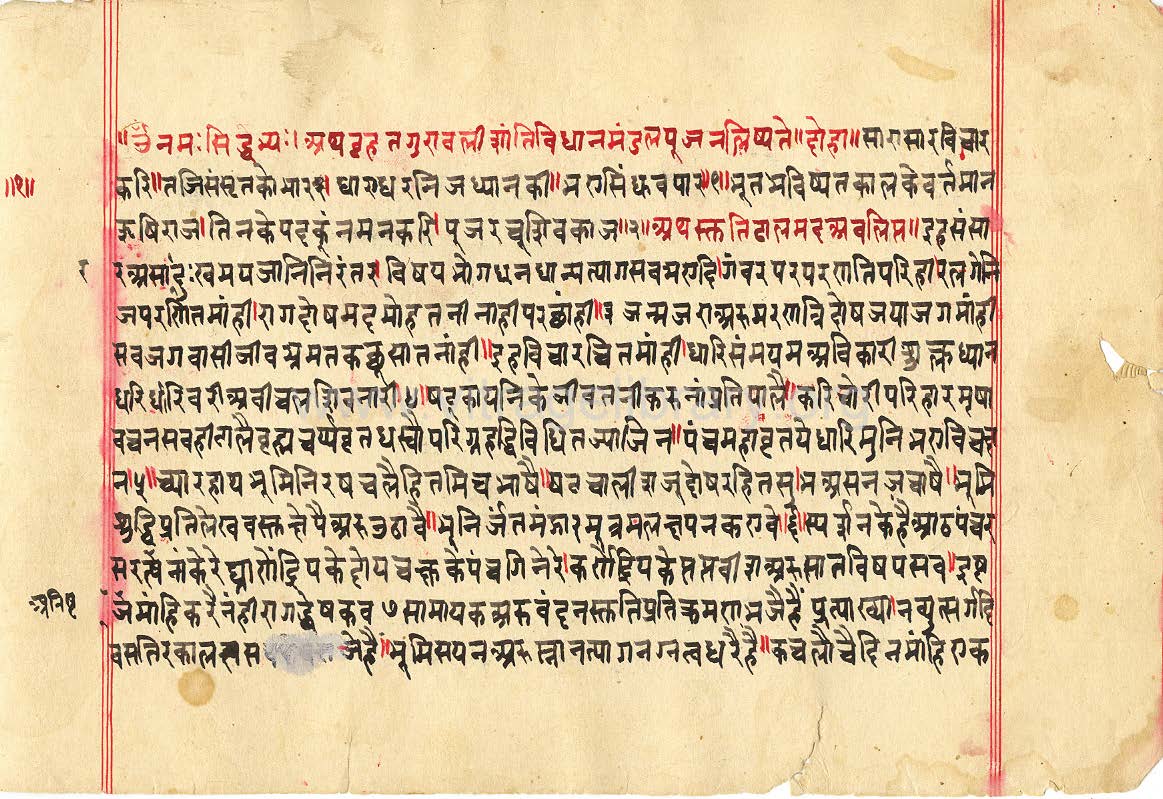 ॥ॐ नमः सिद्धेभ्यः। अथ वृहत गुरावली शांतिविधान मंडल पूजन लिष्यते॥ दोहा॥ सारासार विचार
करि॥ तजि संसृत को भार॥ धारा धर निज ध्यान की॥ भए सिंधु भव पार॥१॥ भूत भविष्यत काल के वर्तमान
॥१॥
ऋषिराज। तिन के पद कूं नमन करि। पूज रचूं शिव काज॥२॥ अथ स्तुति चाल मद अवलिप्त॥ इह संसा
र असार दुःखमय जानि निरंतर। विषय भोग धन धान्य त्याग सब भए दिगंवर पर परणति परिहा। रत्न गे नि
र
ज परणति मांही। राग दोष मद मोह तनी नाही परछांही॥३ जन्म जरा अरु मरण त्रिदोष जया जग मांही
सव जगवासी जीव भ्रमत कछु साता नांही॥ इह विचार चित मांही। धारि संमयम अविकारी शुक्ल ध्यान
धरि धीर वरी अवीचल शिवनारी।४। षट् काय निके जीव तनी करुनां प्रतिपालै। करि चोरी परिहार मृषा
वचन सव ही टालै वृह्मचर्य वृत धस्यो परिगृह द्विविधित ज्याजिन॥ पंच महावृत ये धारि मुनि भए विचछ
न।५॥ च्यार हाथ भूमि निरष चलै हित मित वच भाषै॥ षट चालीश जु दोष रहित सुभ असन ज चाषै॥ भूमि
शुद्धि प्रतिलेख वस्त क्षेपै अरु उठावै॥ भूनिर्जंत मंझार मूत्र मल क्षेपन करावे।६। स्पर्शन के है आठ पंच र
स रसनां के रे घ्राणेंद्रिय के दोय चक्षु के पंच गिनेरे। कर्णेंद्रिय के सप्त सवीश अरु सात विषय सव। इष्ट
अनिष्ट
जे मांहि करै नंही राग द्वेष कव ७ सामायक अरु वंदन स्तुति प्रतिक्रमण भजै हैं प्रत्याख्या। न व्युत्सर्गादि
जे हैं॥ भूमि सयन अरु स्नान त्याग नगनत्व धरै है॥ कच लौंचै दिन मांहि एक